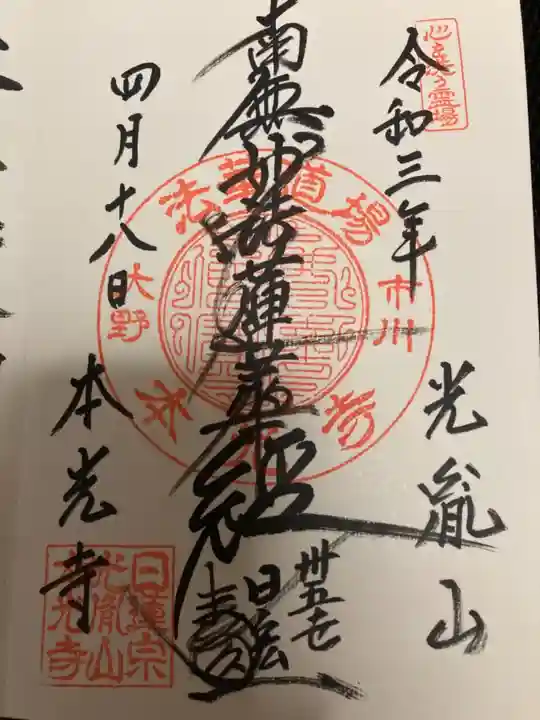 心を洗う霊場
令和三年
光胤山
南無妙法蓮華経
丗五七
日宏
四月十八日
本光寺
法華道場
市川
大野
本光寺
日蓮宗
光胤山
本光寺